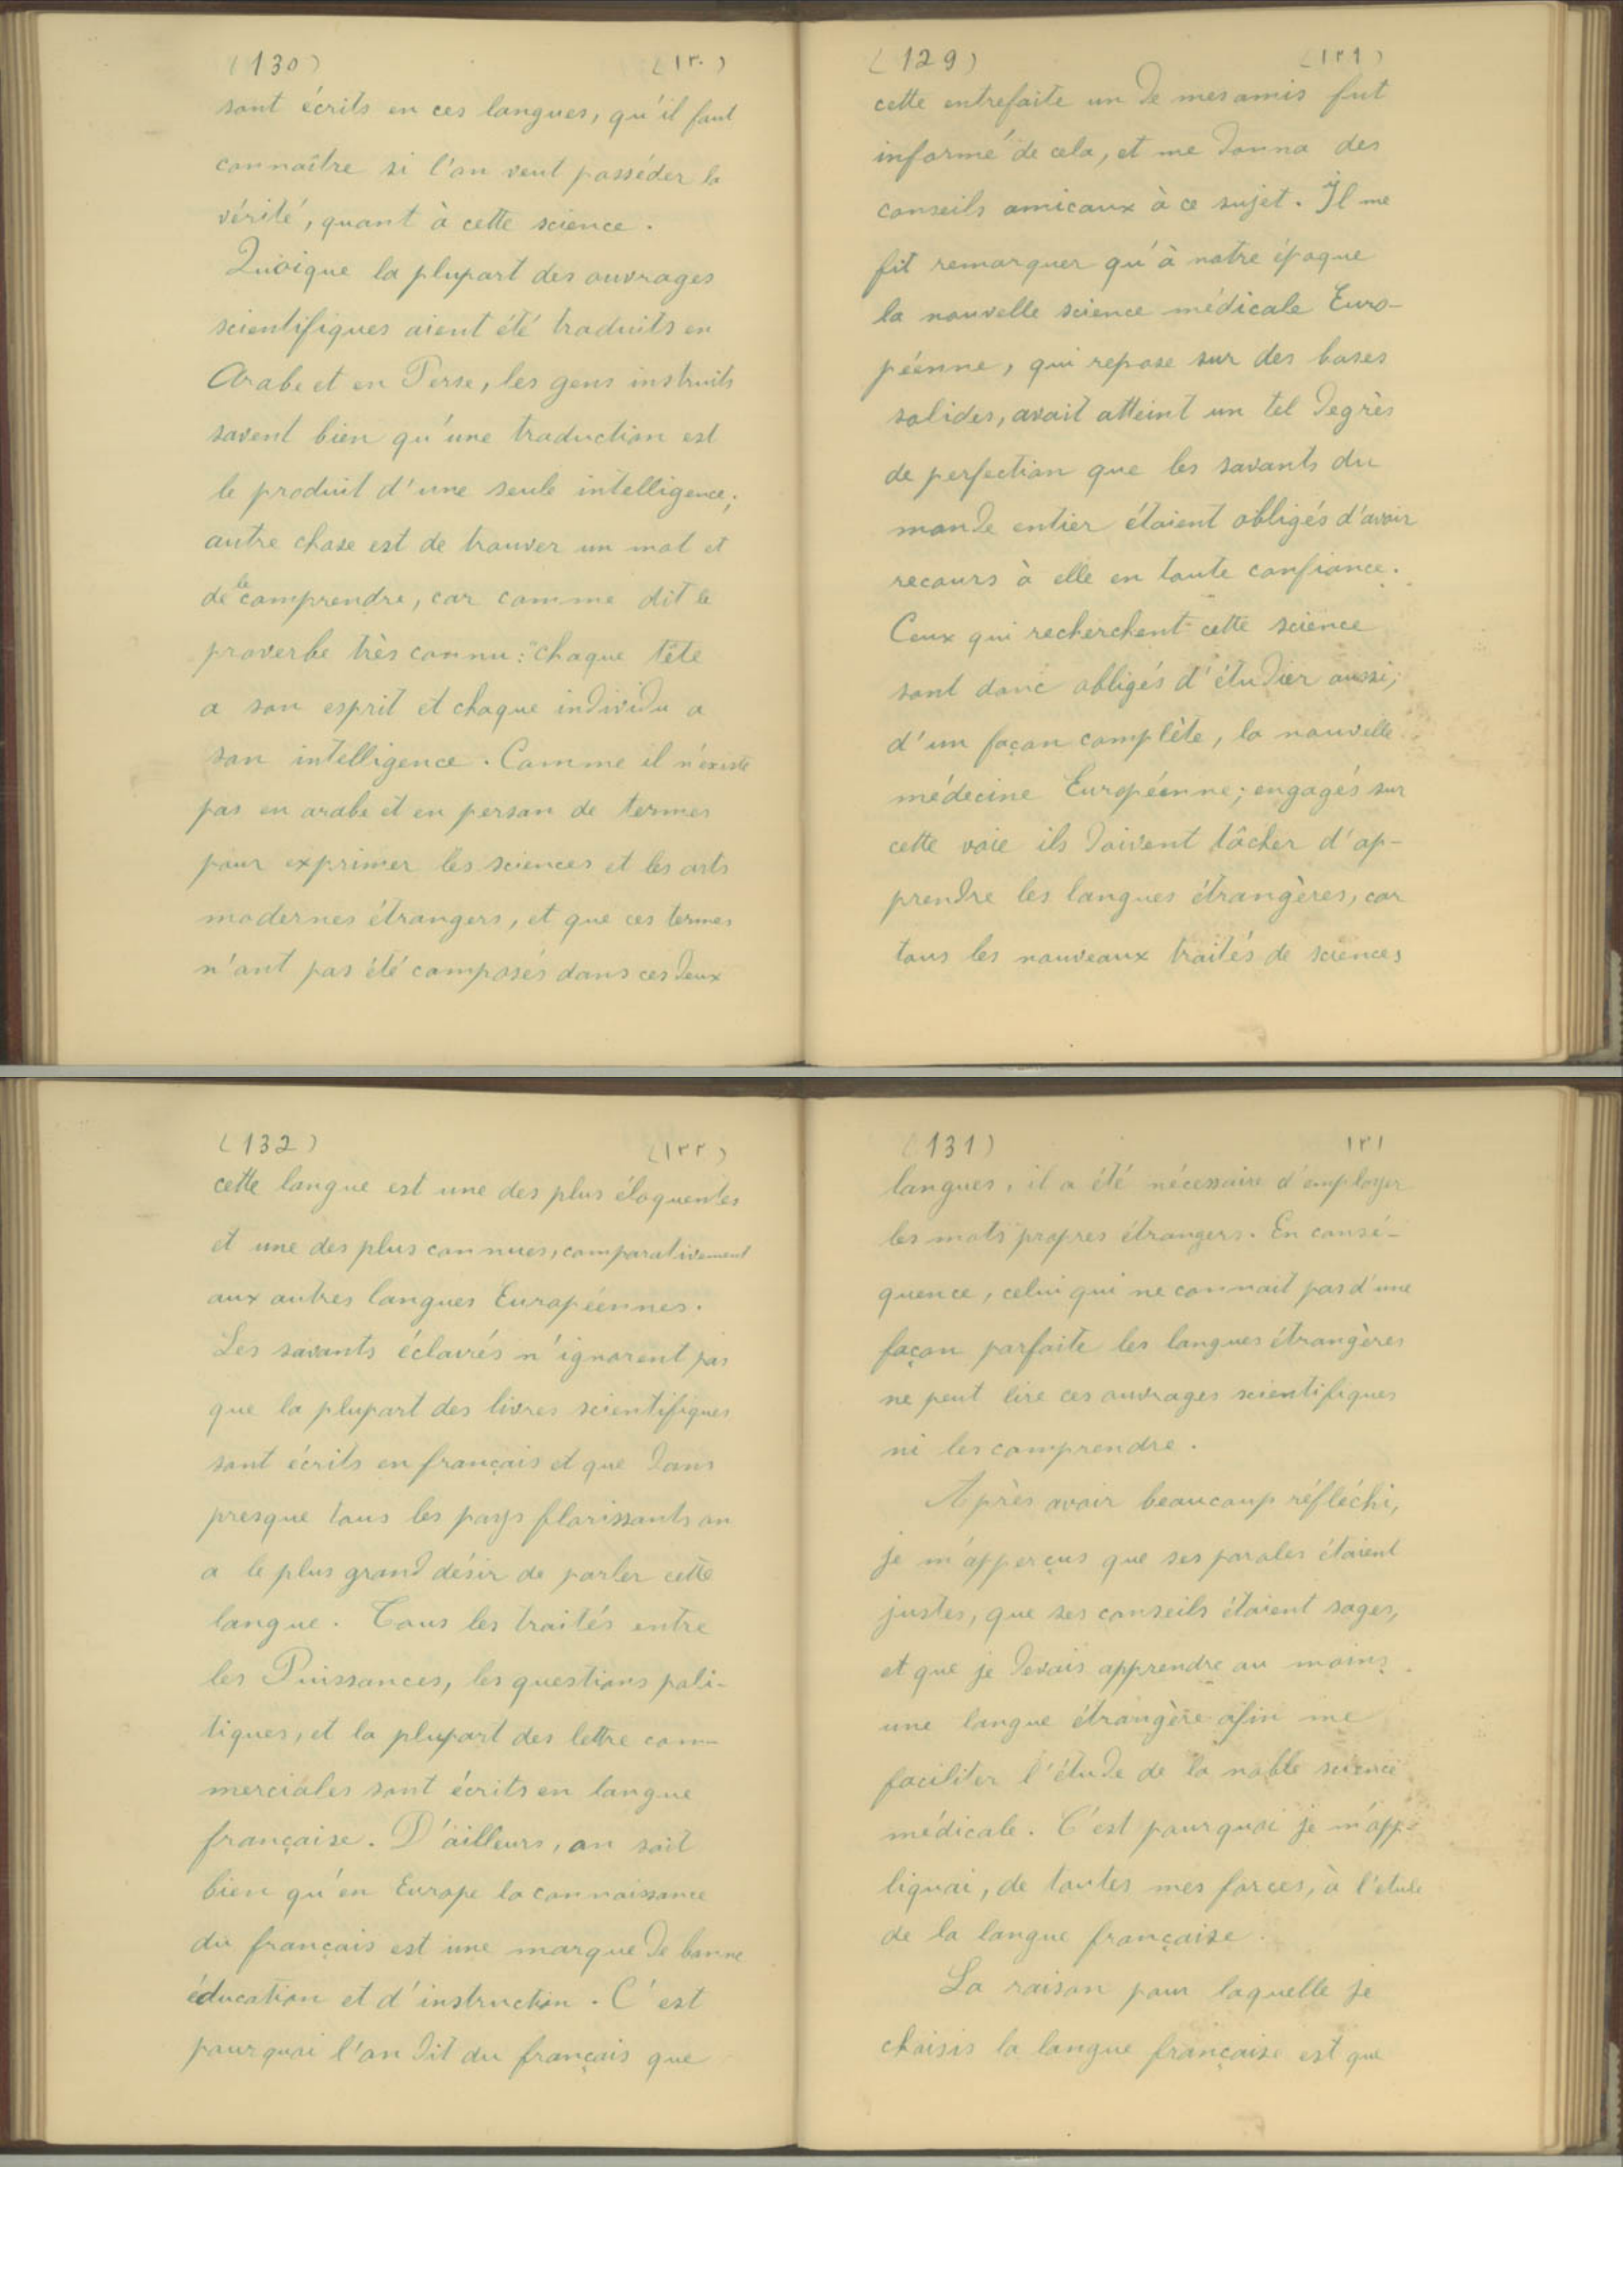 (129) (١٢٩)
cette entrefaite un de mes amis fut
informé de cela, et me donna des
conseils amicaux à ce sujet. Il me
fit remarquer qu'à notre époque
la nouvelle science médicale Euro-
péenne, qui repose sur des bases
solides, avait atteint un tel degrès
de perfection que les savants du
monde entier étaient obligés d'avoir
recours à elle en toute confiance.
Ceux qui recherchent cette science
sont donc obligés d'étudier aussi,
d'un façon complète, la nouvelle
médecine Européenne; engagés sur
cette voie ils doivent tâcher d'ap-
prendre les langues étrangères, car
tous les nouveaux traités de sciences
(130) (١٣٠)
sont écrits en ces langues, qu'il faut
connaître si l'on veut posséder la
vérité, quant à cette science.
Quoique la plupart des ouvrages
scientifiques aient été traduits en
Arabe et en Perse, les gens instruits
savent bien qu'une traduction est
le produit d'une seule intelligence;
autre chose est de trouver un mot et
de le comprendre, car comme dit le
proverbe très connu: "chaque tête
a son esprit et chaque individu a
son intelligence. Comme il n'existe
pas en arabe et en persan de termes
pour exprimer les sciences et les arts
modernes étrangers, et que ces termes
n'ont pas été composés dans ces deux
(131) ١٣١
langues, il a été nécessaire d'employer
les mots propres étrangers. En consé-
quence, celui qui ne connait pas d'une
façon parfaite les langues étrangères
ne peut lire ces ouvrages scientifiques
ni les comprendre.
Après avoir beaucoup réfléchi,
je m'apperçus que ses paroles étaient
justes, que ses conseils étaient sages,
et que je devais apprendre au moins
une langue étrangère afin me
faciliter l'étude de la noble science
médicale. C'est pourquoi je m'app-
liquai, de toutes mes forces, à l'etude
de la langue française.
La raison pour laquelle je
choisis la langue française est que
(132) (١٣٢)
cette langue est une des plus éloquentes
et une des plus connues, comparativement
aux autres langues Européennes.
Les savants éclairés n'ignorent pas
que la plupart des livres scientifiques
sont écrits en français et que dans
presque tous les pays florissants on
a le plus grand désir de parler cette
langue. Tous les traités entre
les Puissances, les questions poli-
tiques, et la plupart des lettre com-
merciales sont écrits en langue
française. D'ailleurs, on sait
bien qu'en Europe la connaissance
du français est une marque de bonne
éducation et d'instruction. C'est
pourquoi l'on dit du français que